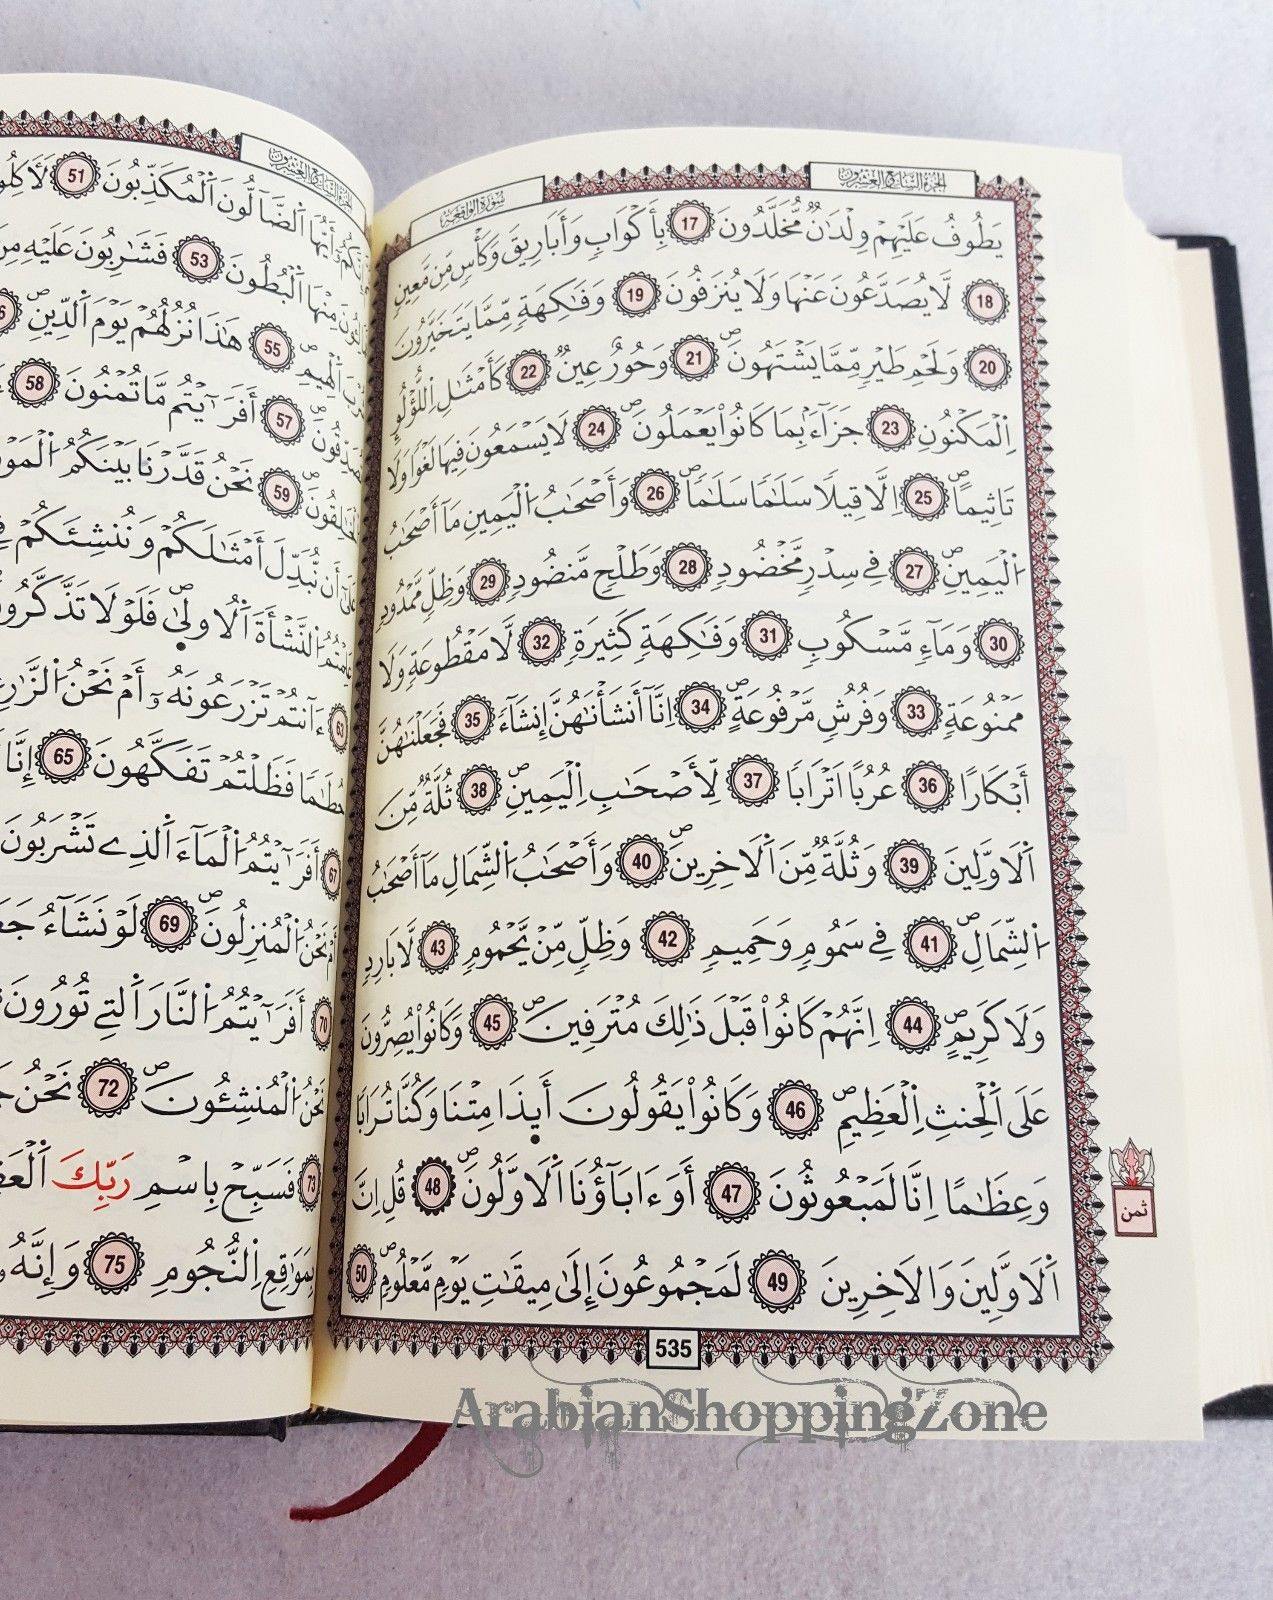 سورة الواقعة
الجزء السابع والعشرون
يَطُوفُ عَلَيْهِمْ وِلْدَٰنٌ مُّخَلَّدُونَ 17 بِأَكْوَابٍ وَأَبَارِيقَ وَكَأْسٍ مِّن مَّعِينٍ
18 لَّا يُصَدَّعُونَ عَنْهَا وَلَا يُنزَفُونَ 19 وَفَٰكِهَةٍ مِّمَّا يَتَخَيَّرُونَ
20 وَلَحْمِ طَيْرٍ مِّمَّا يَشْتَهُونَ 21 وَحُورٌ عِينٌ 22 كَأَمْثَٰلِ اِللُّؤْلُوِٕ
اِلْمَكْنُونِ 23 جَزَآءَۢ بِمَا كَانُواْ يَعْمَلُونَ 24 لَا يَسْمَعُونَ فِيهَا لَغْوًا وَلَا
تَاثِيمًا 25 اِلَّا قِيلًا سَلَٰمًا سَلَٰمًا 26 وَأَصْحَٰبُ اُلْيَمِينِ مَآ أَصْحَٰبُ
اُلْيَمِينِ 27 فِي سِدْرٍ مَّخْضُودٍ 28 وَطَلْحٍ مَّنضُودٍ 29 وَظِلٍّ مَّمْدُودٍ
30 وَمَآءٍ مَّسْكُوبٍ 31 وَفَٰكِهَةٍ كَثِيرَةٍ 32 لَّا مَقْطُوعَةٍ وَلَا
مَمْنُوعَةٍ 33 وَفُرُشٍ مَّرْفُوعَةٍ 34 اِنَّآ أَنشَأْنَٰهُنَّ إِنشَآءً 35 فَجَعَلْنَٰهُنَّ
أَبْكَارًا 36 عُرُبًا اَتْرَابًا 37 لِّأَصْحَٰبِ اِلْيَمِينِ 38 ثُلَّةٌ مِّنَ
اَلَاوَّلِينَ 39 وَثُلَّةٌ مِّنَ اَلَاخِرِينَ 40 وَأَصْحَٰبُ اُلشِّمَالِ مَآ أَصْحَٰبُ
اُلشِّمَالِ 41 فِي سَمُومٍ وَحَمِيمٍ 42 وَظِلٍّ مِّنْ يَّحْمُومٍ 43 لَّا بَارِدٍ
وَلَا كَرِيمٍ 44 اِنَّهُمْ كَانُواْ قَبْلَ ذَٰلِكَ مُتْرَفِينَ 45 وَكَانُواْ يُصِرُّونَ
عَلَى اَلْحِنثِ اِلْعَظِيمِ 46 وَكَانُواْ يَقُولُونَ أَئِذَا مِتْنَا وَكُنَّا تُرَابًا
وَعِظَٰمًا اِنَّا لَمَبْعُوثُونَ 47 أَوَءَابَآؤُنَا اَلَاوَّلُونَ 48 قُلِ اِنَّ
اَلَاوَّلِينَ وَالَاخِرِينَ 49 لَمَجْمُوعُونَ إِلَىٰ مِيقَٰتِ يَوْمٍ مَّعْلُومٍ 50
ثمن
535
أَيُّهَا اَلضَّآلُّونَ اَلْمُكَذِّبُونَ 51
مِنْهَا اَلْبُطُونَ 53 فَشَٰرِبُونَ عَلَيْهِ
اَلْهِيمِ 55 هَٰذَا نُزُلُهُمْ يَوْمَ اَلدِّينِ
57 أَفَرَٰٓيْتُم مَّا تُمْنُونَ 58
59 نَحْنُ قَدَّرْنَا بَيْنَكُمُ
أَن نُّبَدِّلَ أَمْثَٰلَكُمْ وَنُنشِئَكُمْ
اُلنَّشْأَةَ اَلُاولَىٰ فَلَوْلَا
ءَآنتُمْ تَزْرَعُونَهُۥٓ أَمْ نَحْنُ
حُطَٰمًا فَظَلْتُمْ تَفَكَّهُونَ 65 إِنَّا
67 أَفَرَٰٓيْتُمُ اُلْمَآءَ اَلَّذِي تَشْرَبُونَ
نَحْنُ اُلْمُنزِلُونَ 69 لَوْ نَشَآءُ
70 أَفَرَٰٓيْتُمُ اُلنَّارَ اَلَّتِي تُورُونَ
نَحْنُ اُلْمُنشِئُونَ 72 نَحْنُ
73 فَسَبِّحْ بِاسْمِ رَبِّكَ
بِمَوَٰقِعِ اِلنُّجُومِ 75 وَإِنَّهُۥ
ArabianShoppingZone